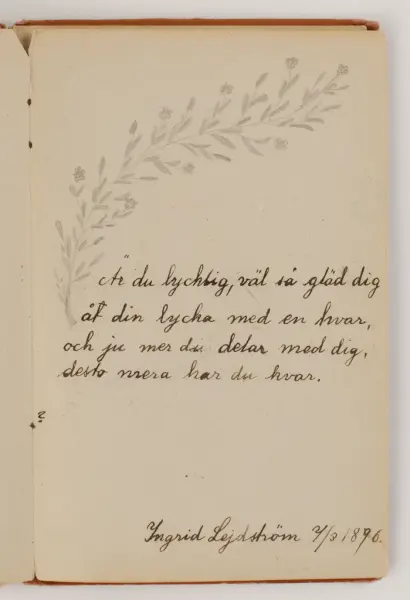 Är du lychtig, väl så gläd dig
åt din lycka med en hvar,
och ju mer du delar med dig,
desto mera har du kvar.
Ingrid Lejdström 7/3 1896.